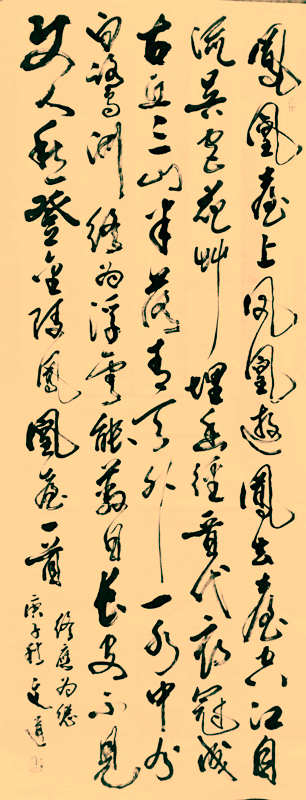 鳳凰臺上凤凰遊鳳去臺空江自
流吳宮花草埋幽徑晉代衣冠成
古丘三山半落青天外一水中分
白鷺洲為浮雲能蔽日長安不見
使人愁登金陵鳳凰臺一首
應為總
庚子秋